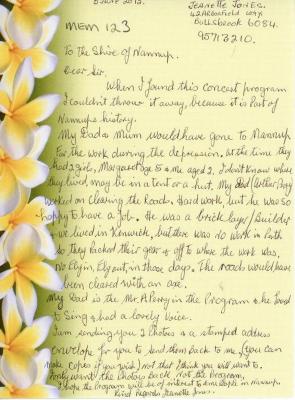 5 June 2013.
JEANETTE JONES.
BULLSBROOK 6084.
95713210.
MEM 123
To the Shire of Nannup.
Dear Sir,
When I found this concert program
I couldn't throw it away, because it is Part of
Nannups history.
My Dad & Mum would have gone to Nannup
For the work during the depression. At the time they
had 2 girls, Margaret age 5 & me aged 2, I don't know where
they lived, may be in a tent or a hut. My Dad (Arthur Perry)
worked on clearing the Roads. Hard work but he was so
happy to have a job. He was a brick layer / Builder
& we lived in Kenwick, but there was no work in Perth
so they Packed their gear & off to where the work was,
No Elgin, Elgant, in those days. The roads would have
been cleared with an axe.
My Dad is the Mr A Perry in the Program & he loved
to Sing & had a lovely Voice.
I am sending you 2 Photos & a stamped address
envelope for you to send them back to me (you can
make copies if you wish) Not that I think you will want to.
I only want the Photos back Not the Program,
I hope the Program will be of interest to some People in Nannup.
Kind regards Jeanette Jones.